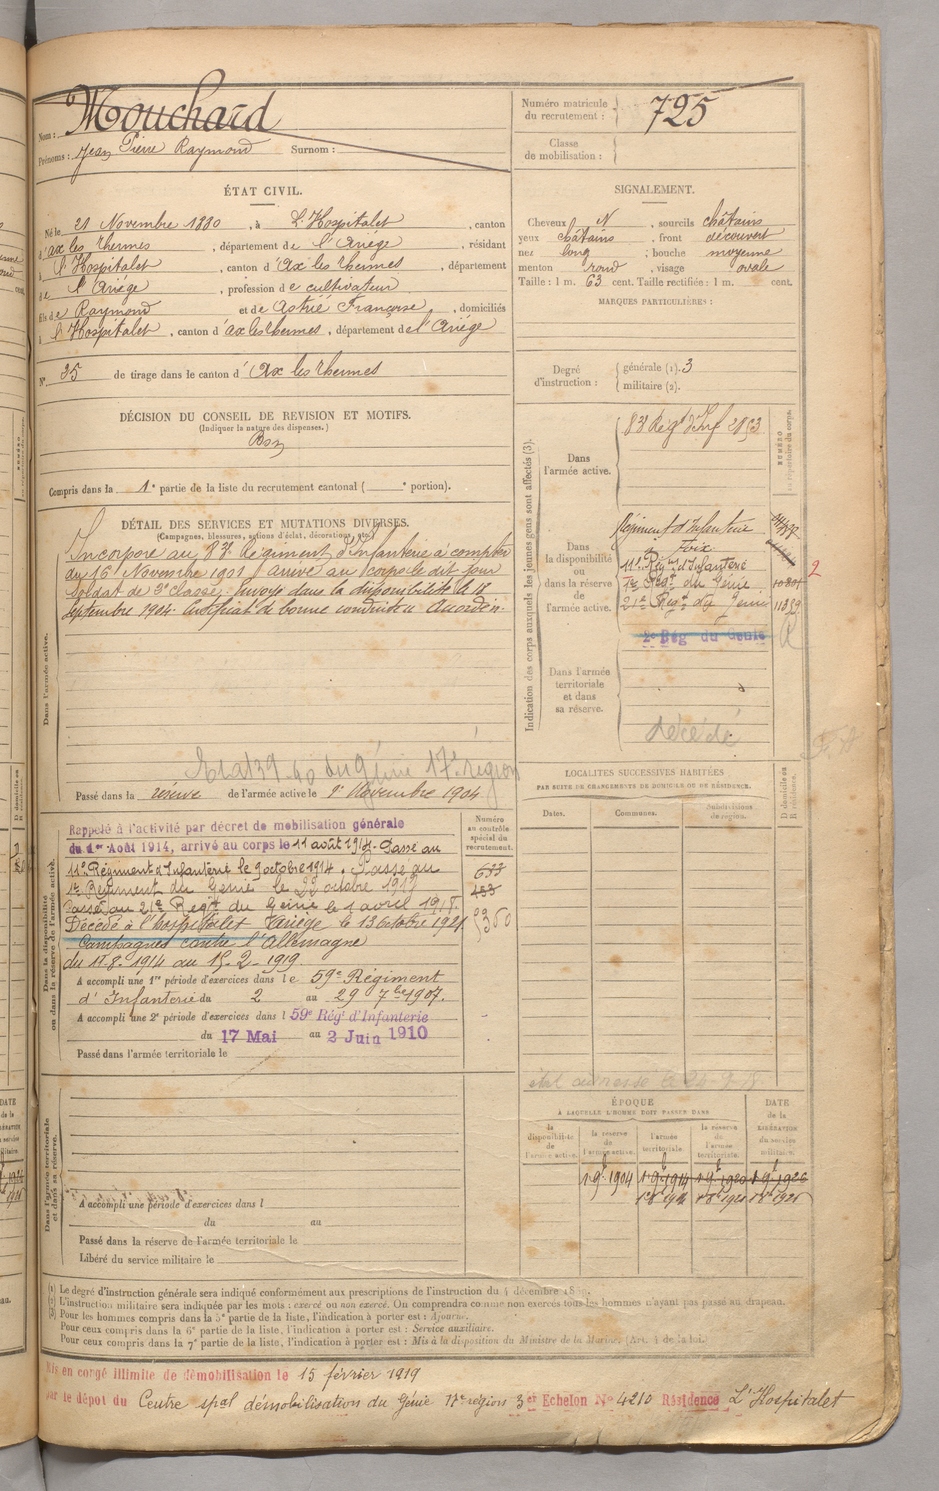 Nom : Mouchard
Prénoms : Jean Pierre Raymond Surnom :
Numéro matricule du recrutement : 725
Classe de mobilisation :
ÉTAT CIVIL.
Né le 21 Novembre 1880, à L'Hospitalet, canton
d'ax les Thermes, département de l'Ariège, résidant
à l'Hospitalet, canton d'Ax les Thermes, département
de l'Ariège, profession de cultivateur
fils de Raymond et de Astrié Françoise, domiciliés
à l'Hospitalet, canton d'ax les Thermes, département de l'Ariège
N° 35 de tirage dans le canton d'Ax les Thermes
SIGNALEMENT.
Cheveux N, sourcils châtains
yeux châtains, front découvert
nez long; bouche moyenne
menton rond, visage ovale
Taille : 1 m. 63 cent. Taille rectifiée : 1 m. cent.
MARQUES PARTICULIÈRES :
Degré d'instruction : générale (1). 3
militaire (2).
DÉCISION DU CONSEIL DE REVISION ET MOTIFS.
(Indiquer la nature des dispenses.)
Bon
Compris dans la 1e partie de la liste du recrutement cantonal ( e portion).
DÉTAIL DES SERVICES ET MUTATIONS DIVERSES.
(Campagnes, blessures, actions d'éclat, décorations, etc.)
Dans l'armée active.
Incorporé au 83e Régiment d'Infanterie à compter
du 16 Novembre 1901 Arrivé au corps le dit jour
Soldat de 2e classe. Envoyé dans la disponibilité le 18
septembre 1904. Certificat de bonne conduite : Accordé.
17e région
Passé dans la réserve de l'armée active le 1er Novembre 1904
Indication des corps auxquels les jeunes gens sont affectés (3).
NUMÉRO au répertoire du corps.
Dans l'armée active.
83e Régt d'Inf
Dans la disponibilité ou dans la réserve de l'armée active.
Régiment d'Infanterie
Foix
11e Régt d'Infanterie
1er Régt du Génie
21e Régt du Génie
2e Rég du Génie
2
Dans l'armée territoriale et dans sa réserve.
Décédé
Dans la disponibilité ou dans la réserve de l'armée active.
Numéro au contrôle spécial du recrutement.
Rappelé à l'activité par décret de mobilisation générale
du 1er Août 1914, arrivé au corps le 11 août 1914. Passé au
11e Régiment d'Infanterie le 9 octobre 1914. Passé au
1er Régiment du Génie le 22 octobre 1917
Passé au 21e Régt du Génie le 1 avril 1918.
Décédé à l'hospitalet Ariège le 13 Octobre 1921
Campagnes contre l'Allemagne
du 11-8-1914 au 15-2-1919.
A accompli une 1re période d'exercices dans le 59e Régiment
d'Infanterie du 2 au 29 7bre 1907.
A accompli une 2e période d'exercices dans l 59e Régt d'Infanterie
du 17 Mai au 2 Juin 1910
Passé dans l'armée territoriale le
LOCALITES SUCCESSIVES HABITÉES
PAR SUITE DE CHANGEMENTS DE DOMICILE OU DE RÉSIDENCE.
Dates. Communes. Subdivisions de région. D domicile ou R résidence.
Dans l'armée territoriale et dans sa réserve.
A accompli une période d'exercices dans l
du au
Passé dans la réserve de l'armée territoriale le
Libéré du service militaire le
ÉPOQUE
À LAQUELLE L'HOMME DOIT PASSER DANS
la disponibilité de l'armée active.
la réserve de l'armée active.
l'armée territoriale.
la réserve de l'armée territoriale.
DATE de la LIBÉRATION du service militaire.
1 9b 1904 1 9b 1914 1 9b 1920 1 9b 1926
(1) Le degré d'instruction générale sera indiqué conformément aux prescriptions de l'instruction du 4 décembre 1889.
(2) L'instruction militaire sera indiquée par les mots : exercé ou non exercé. On comprendra comme non exercés tous les hommes n'ayant pas passé au drapeau.
(3) Pour les hommes compris dans la 5e partie de la liste, l'indication à porter est : Ajourné.
Pour ceux compris dans la 6e partie de la liste, l'indication à porter est : Service auxiliaire.
Pour ceux compris dans la 7e partie de la liste, l'indication à porter est : Mis à la disposition du Ministre de la Marine (Art. 4 de la loi.)
Mis en congé illimité de démobilisation le 15 février 1919
par le dépôt du Centre spal démobilisation du Génie 17e région 3er Echelon No 4210 Résidence L'Hospitalet